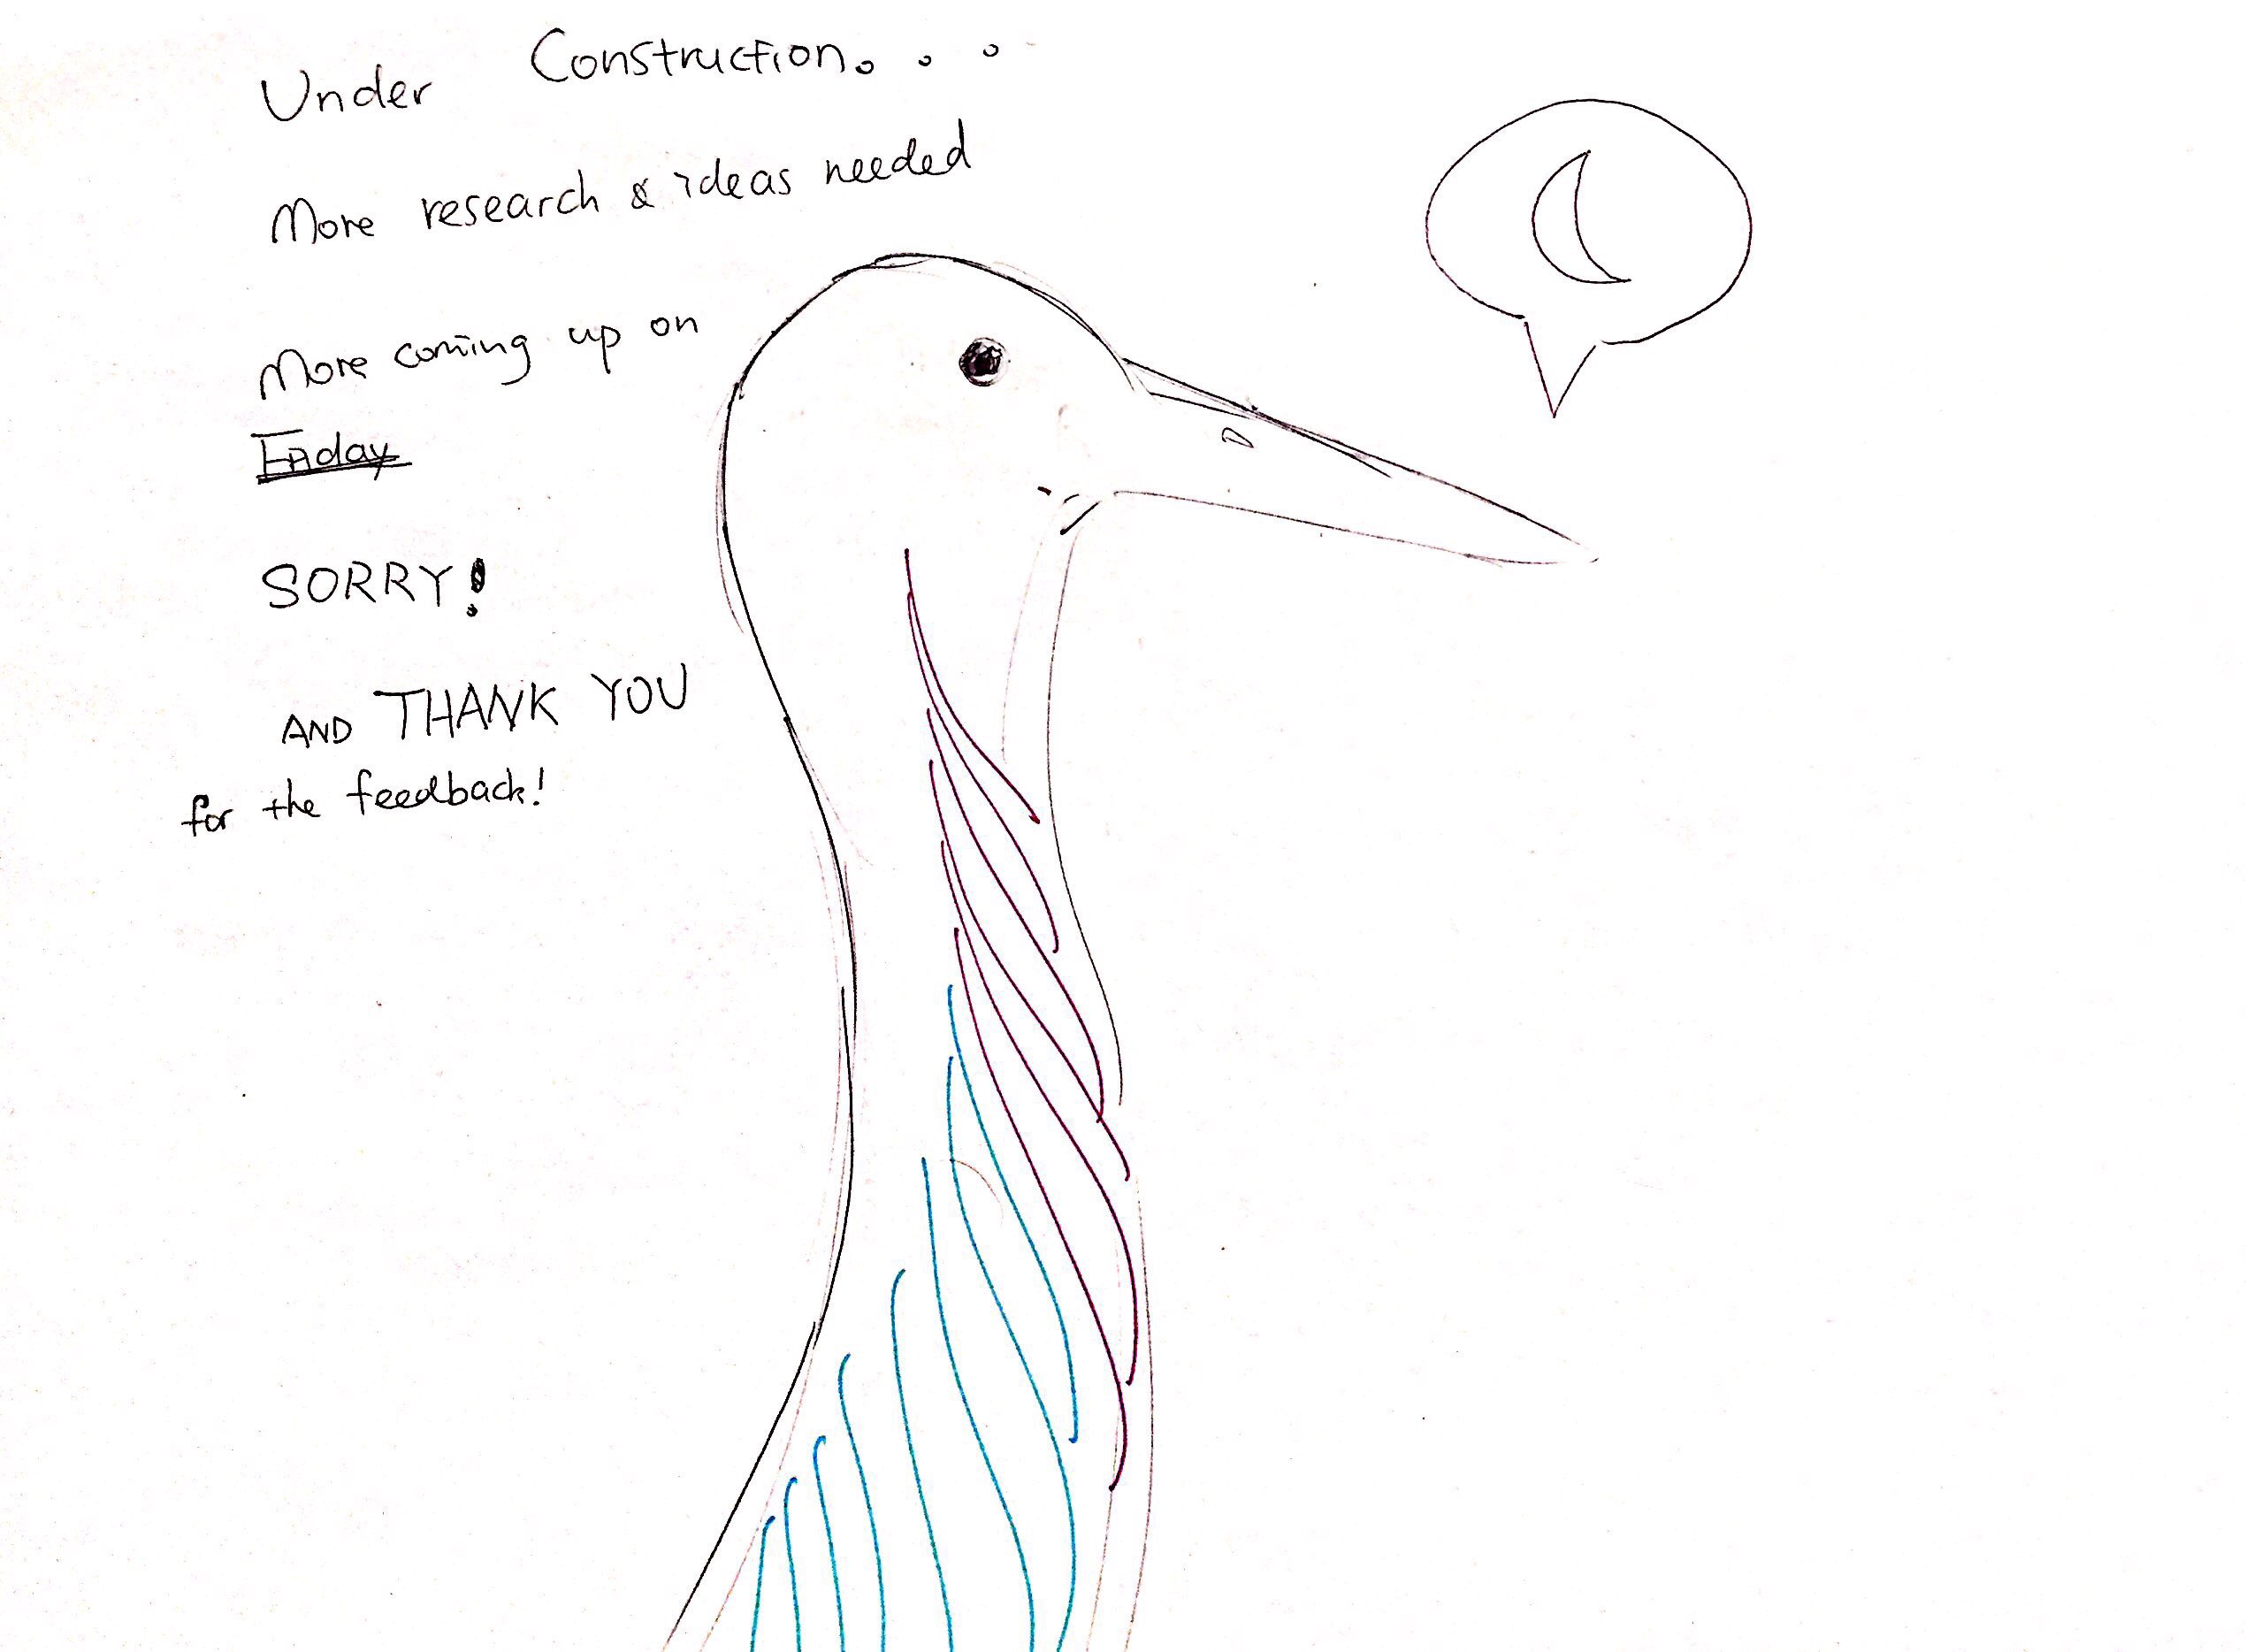 Under Construction...
More research & ideas needed
More coming up on
Friday
SORRY!
AND THANK YOU
for the feedback!